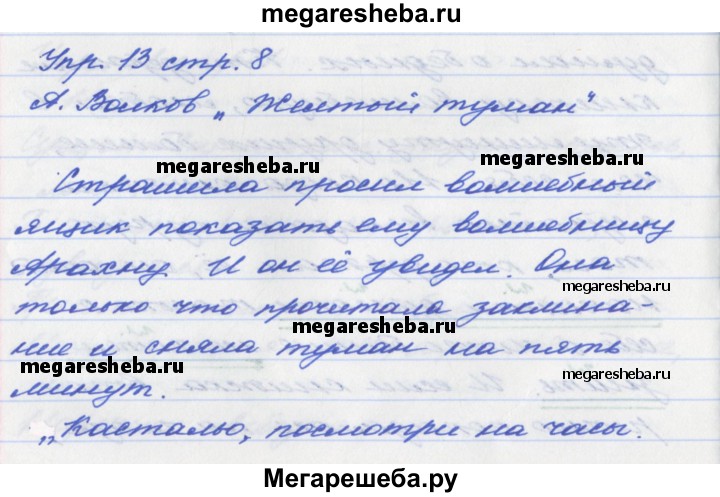 megaresheba.ru
Упр. 13 стр. 8
А. Волков „Желтый туман“
megaresheba.ru
megaresheba.ru
Страшила просил волшебный
ящик показать ему волшебницу
Арахну. И он её увидел. Она
megaresheba.ru
только что прочитала заклина-
megaresheba.ru
ние и сняла туман на пять
megaresheba.ru
megaresheba.ru
минут.
„Касталью, посмотри на часы.
Мегарешеба.ру